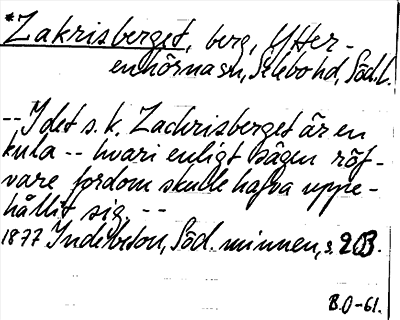 *Zakrisberget, berg, Ytter-
enhörna sn, Selebo hd, Söd.l.
-- I det s. k. Zachrisberget är en
kula -- hvari enligt sägen röf-
vare fordom skulle hafva uppe-
hållit sig. --
1877 Indebetou, Söd. minnen, s. 203.
B.O-61.